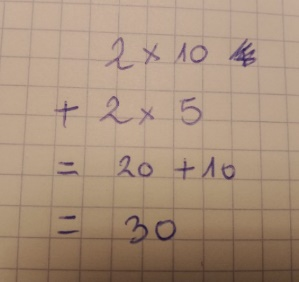 2 × 10
+ 2 × 5
= 20 + 10
= 30